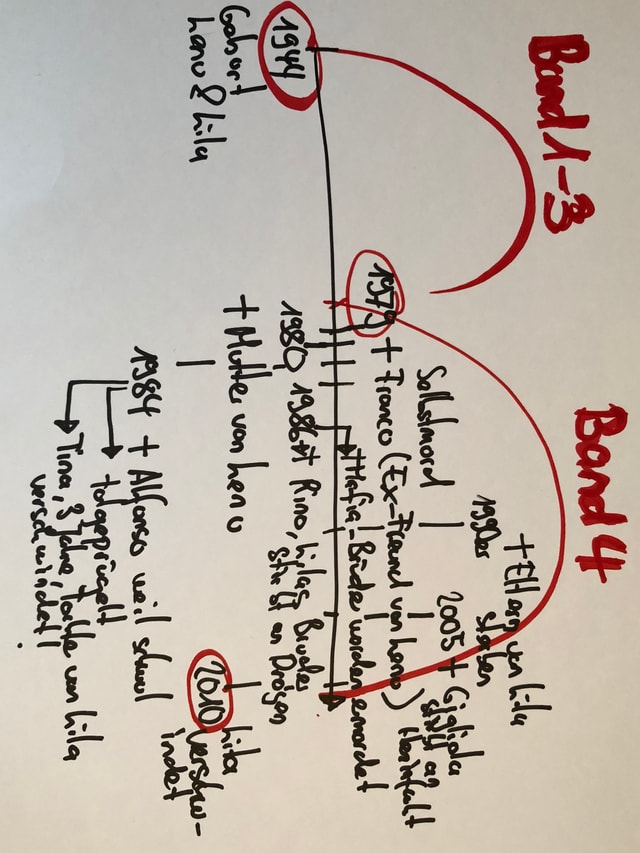 Band 1-3
Band 4
1944
Geburt
Lenu & Lila
1979
Selbstmord
+ Franco (Ex-Freund von Lenu)
1990er
+ Eltern von Lila
sterben
2005 + Gigliola
stirbt an
Herzinfarkt
Mafia-Brüder werden ermordet
1980
+ Mutter von Lenu
1986 + Rino, Lilas Bruder
stirbt an Drogen
1984 + Alfonso weil schwul
totgeprügelt
Tina, 3 Jahre, Tochter von Lila
verschwindet!
2010
Lila
verschw-
indet